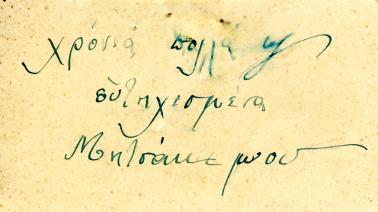 χρόνια πολλά κ
εὐτηχισμένα
Μητσάκε μου